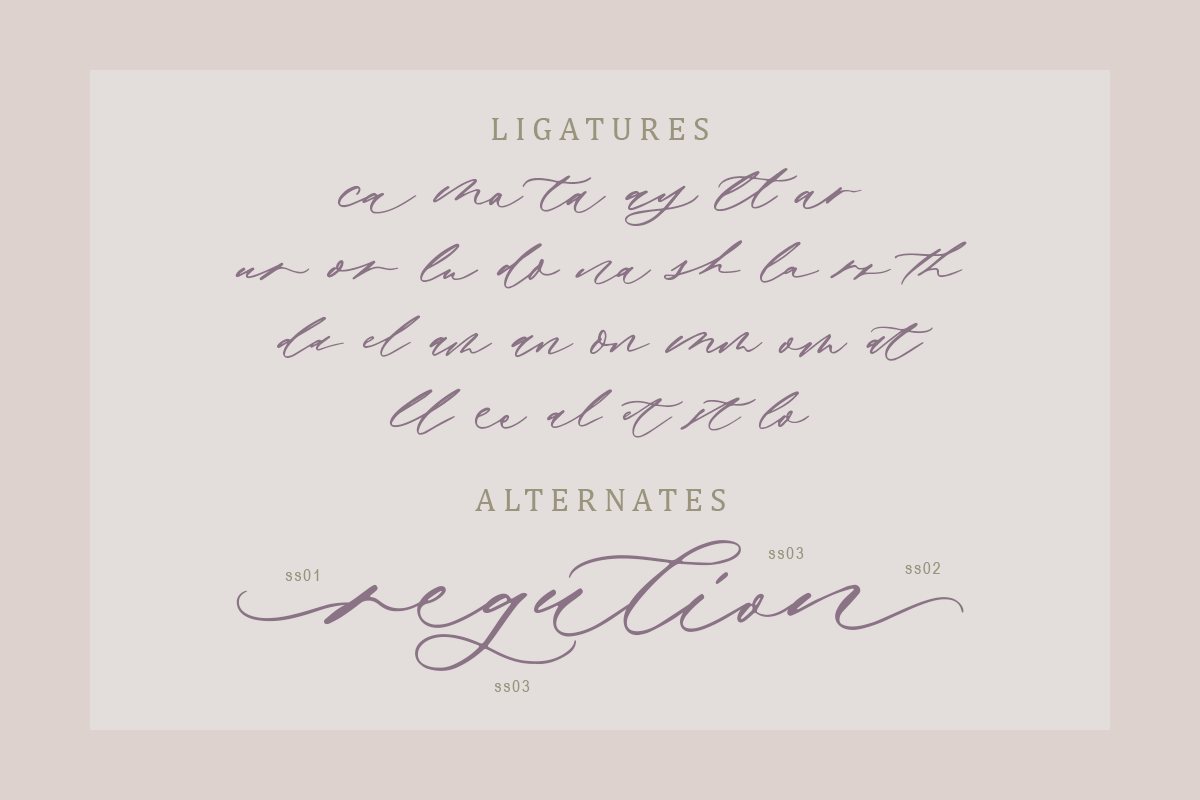 LIGATURES
ca ma ta ay tt ar
ur or lu do na sh la rr th
da el am an on mm om at
ll ee al et st lo
ALTERNATES
ss03
ss02
ss01
regution
ss03